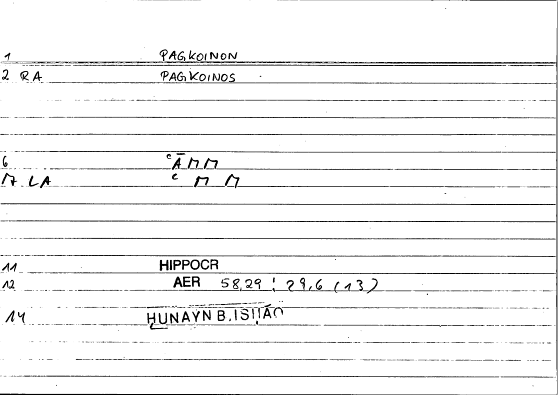 1 PAGKOINON
2 RA PAGKOINOS
6 ʿĀMM
7 LA ʿMM
11 HIPPOCR
12 AER 58,29 ; 29,6 (13)
14 HUNAYN B.